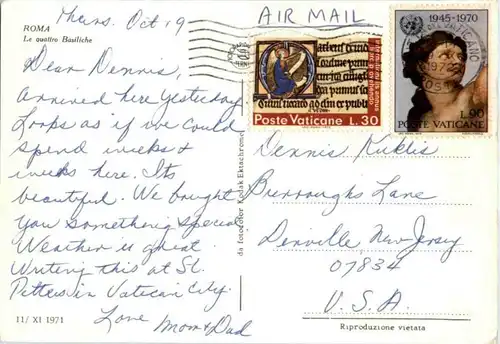 ROMA
Le quattro Basiliche
Thurs. Oct 19
AIR MAIL
Dear Dennis,
Arrived here Yesterday.
Looks as if we could
spend weeks &
weeks here. Its
beautiful. We bought
you something special
Weather is great.
Writing this at St.
Peters in Vatican City.
Love
Mom & Dad
11/ XI 1971
da fotocolor Kodak Ektachrome
Poste Vaticane L.30
1945-1970
L.90
POSTE VATICANE
Dennis Kuklis
Burroughs Lane
Denville New Jersey
07834
U.S.A.
Riproduzione vietata